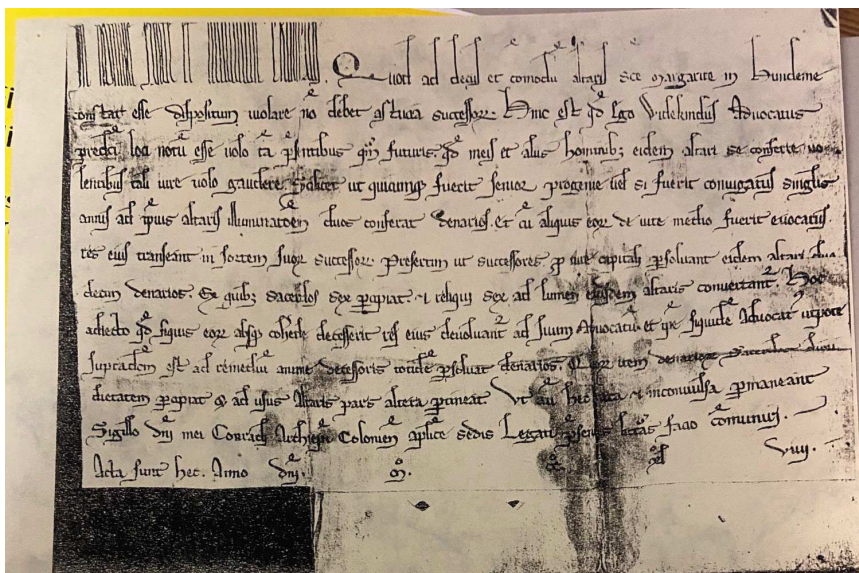 Quod ad decus et comodu altaris sce Margarite in Hundeme
constat esse dispositum uiolare no debet astucia successor. Hinc est qd Ego Videkindus Aduocatus
predicti loci notu esse uolo ta psentibus qm futuris. qd meis et aliis hominib; eidem altari se conferre uo
lentibus tali iure uolo gaudere. scilicet ut quicumq; fuerit senior progenie uel si fuerit coniugatus singulis
annis ad ipsius altaris illuminatoem duos conferat denarios. Et cu aliquis eor de uite medio fuerit euocatus
res eius transeant in sortem suor successor. Presertim ut successores p iure capitali psoluant eidem altari duo
decim denarios. Ex quib; sacerdos sex pcipiat. et reliqui sex ad lumen eiusdem altaris conuertant. Hoc
adiecto qd siquis eor absq; coherede decesserit res eius deuoluant ad suum Aduocatu et ipse siquide Aduocat utpote
supradcm est ad remediu anime decessoris totide psoluat denarios. Quor item denarior Sacerdos
dietatem pcipiat et ad usus Altaris pars altera ptineat. Vt au hec rata et inconuulsa pmaneant
Sigillo dni mei Conradi Archiepi Colonien aplice sedis Legati psentes litas facio comuniri.
Acta sunt hec. Anno dni. M. CC. XL Viij.